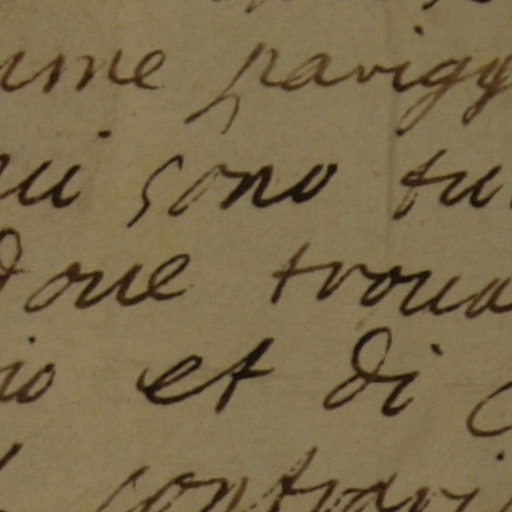 ume parigg
ui sono tu
doue troua
io et di
contrari